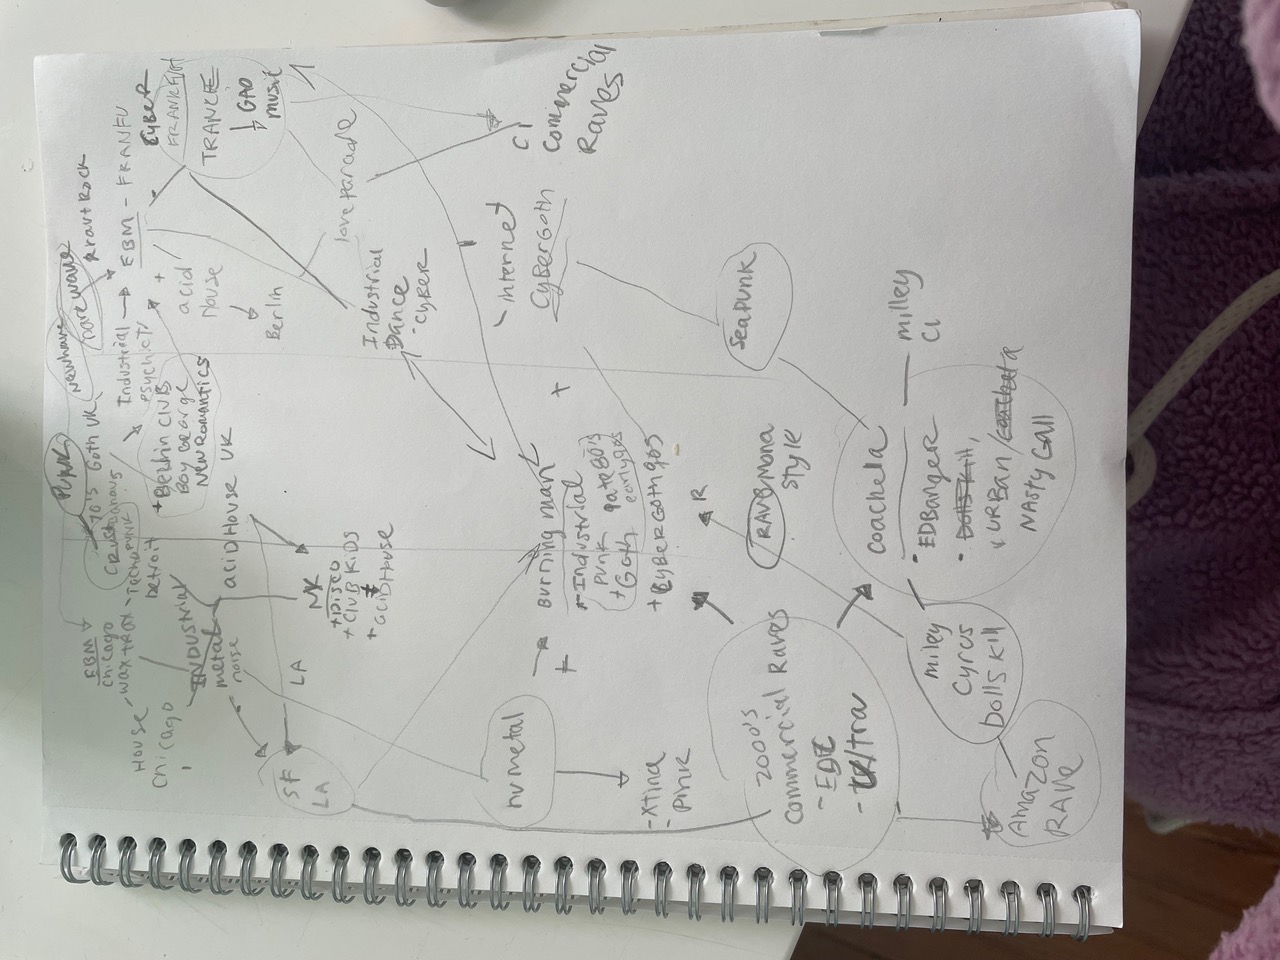 PUNK
Newwave
darkwave
Krautrock
70's Goth UK
EBM
chicago
House
wax trax
Detroit
Industrial
psychic
EBM - FRANFU
CYBER
FRANKFURT
TRANCE
GAO
music
+
acid
house
Berlin
+ Berlin CLUB
Boy George
New Romantics
acid House UK
Chicago
INDUSTRIAL
metal
noise
LA
NY
+ DISCO
+ CLUB KIDS
+ acid House
love Parade
Industrial
Dance
- CYBER
SF
LA
CI
Commercial
Raves
- internet
CyberGoth
nu metal
+
Burning man
- Industrial
punk
+ Goth
+ CYBERGOTH gos
+
- Xtina
- Pink
R
Seapunk
RAVE mona
style
2000's
Commercial Raves
- EDC
- Ultra
Coachella
milley
CI
• EDBanger
• Dolls Kill,
URBan/
NASTY Gall
miley
Cyrus
Dolls Kill
Amazon
RAVe